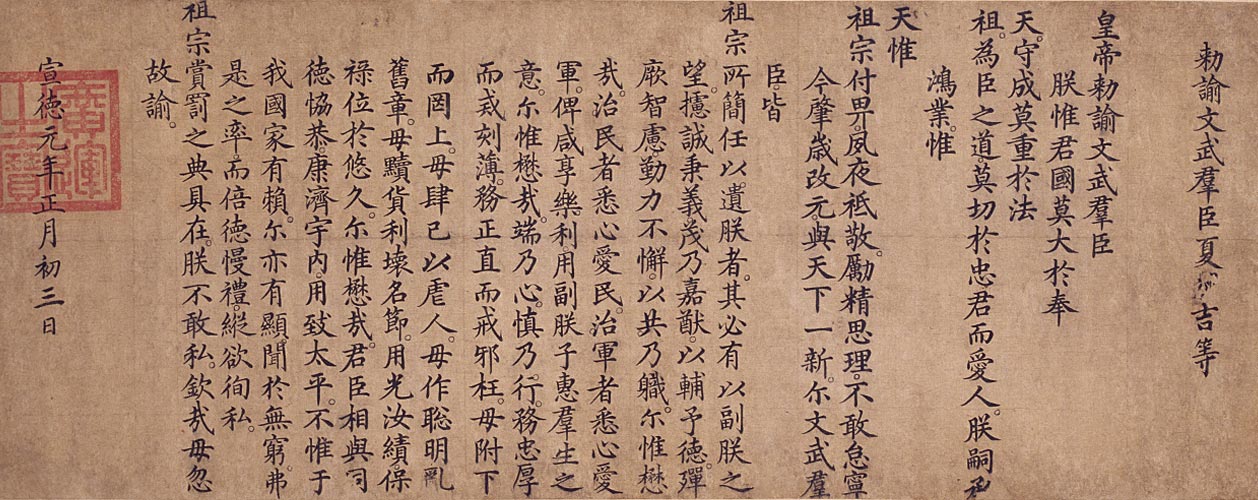 勅諭文武羣臣夏 吉等
皇帝勅諭文武羣臣
朕惟君國莫大於奉
天。守成莫重於法
祖。為臣之道。莫切於忠君而愛人。朕嗣
鴻業。惟
天惟
祖宗付畀。夙夜祗敬。勵精思理。不敢怠寧
今肇歲改元。與天下一新。尔文武羣
臣。皆
祖宗所簡任。以遺朕者。其必有以副朕之
望。攄誠秉義。茂乃嘉猷。以輔予德。殫
厥智慮。勤力不懈。以共乃職。尔惟懋
㢤。治民者悉心愛民。治軍者悉心愛
軍。俾咸享樂利。用副朕子惠羣生之
意。尔惟懋㢤。端乃心。慎乃行。務忠厚
而戒刻薄。務正直而戒邪枉。毋附下
而罔上。毋肆己以虐人。毋作聰明亂
舊章。毋黷貨利壞名節。用光汝績。保
祿位於悠久。尔惟懋㢤。君臣相與。同
徳恊恭。康濟宇內。用致太平。不惟于
我國家有賴。尔亦有顯聞於無窮。弗
是之率。而倍徳慢禮。縱欲徇私。
祖宗賞罰之典具在。朕不敢私。欽㢤毋忽
故諭。
宣徳元年正月初三日
廣運之寶